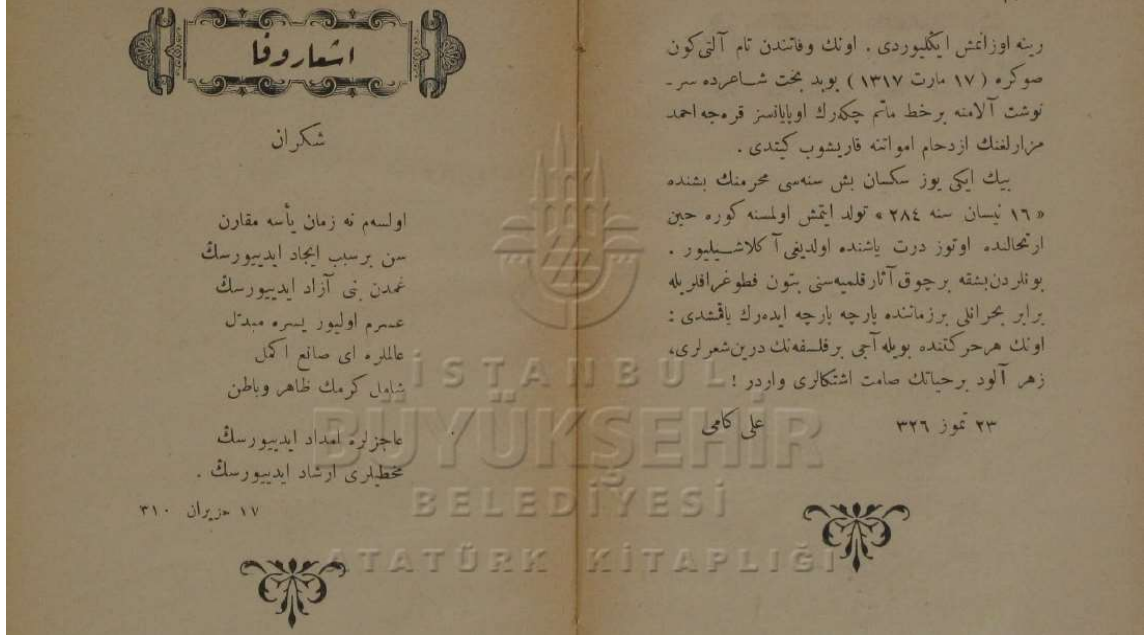 رينه اوزانمش ايكليوردى . اونك وفاتندن تام آلتى كون
صوكره ( ١٧ مارت ١٣١٧ ) بوبد بخت شــاعرده سر ـ
نوشت آلامنه برخط ماتم چكه‌رك اوپايانسز قره‌جه احمد
مزارلغنك ازدحام امواتنه قاريشوب كيتدى .
بيك ايكى يوز سكسان بش سنه‌سى محرمنك بشنده
« ١٦ نيسان سنه ٢٨٤ » تولد ايتمش اولمسنه كوره حين
ارتحالنده اوتوز درت ياشنده اولديغى آ كلاشــيليور .
بونلردن‌بشقه برچوق آثار قلميه‌سنى بتون فطوغرافلريله
برابر بحرانلى برزماننده پارچه پارچه ايده‌رك ياقمشدى :
اونك هرحركتنده بويله آجى برفلسفه‌نك درين‌شعرلرى،
زهر آلود برحياتك صامت اشتكالرى واردر !
٢٣ تموز ٣٢٦ على كامى
اشعار وفا
شكران
اولسه‌م نه زمان يأسه مقارن
سن برسبب ايجاد ايدييورسڭ
غمدن بنى آزاد ايدييورسڭ
عسرم اوليور يسره مبدل
عالملره اى صانع اكمل
شامل كرمك ظاهر وباطن
عاجزلره امداد ايدييورسڭ
مخطيلرى ارشاد ايدييورسڭ .
١٧ حزيران ٣١٠
İSTANBUL
BÜYÜKŞEHİR
BELEDİYESİ
ATATÜRK KİTAPLIĞI